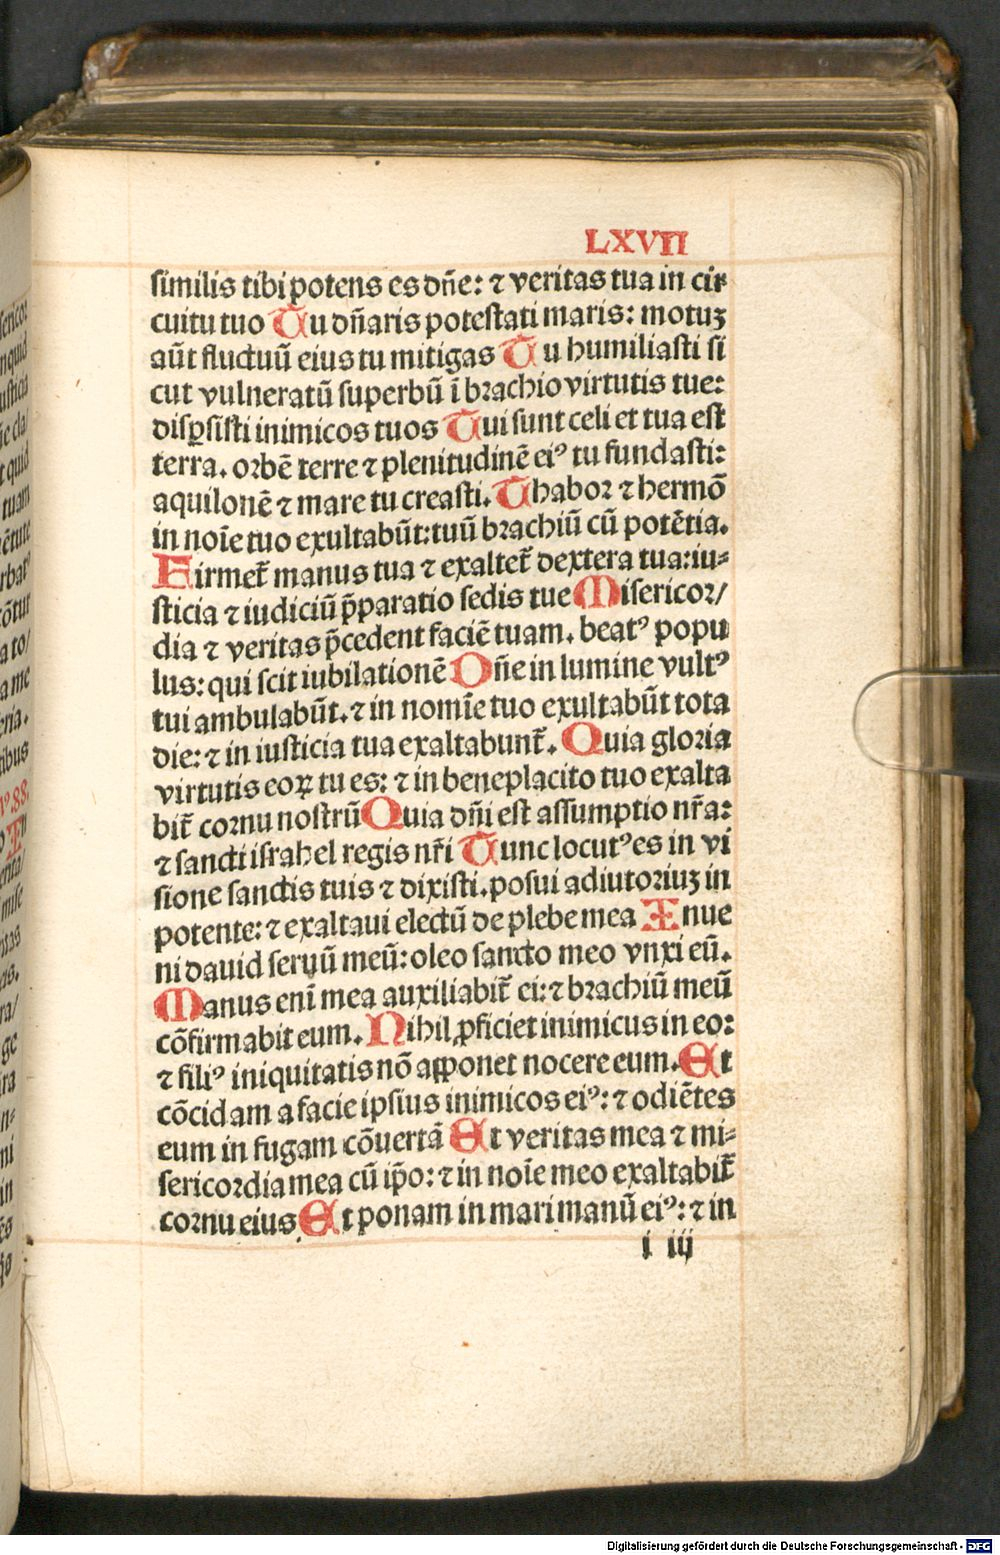 LXVII
similis tibi potens es dñe: ⁊ veritas tua in cir
cuitu tuo Tu dñaris potestati maris: motuꝫ
aūt fluctuū eius tu mitigas Tu humiliasti si
cut vulneratū superbū ī brachio virtutis tue:
disꝑsisti inimicos tuos Tui sunt celi et tua est
terra. orbē terre ⁊ plenitudinē eiꝰ tu fundasti:
aquilonē ⁊ mare tu creasti. Thabor ⁊ hermō
in noīe tuo exultabūt: tuū brachiū cū potētia.
Firmet̄ manus tua ⁊ exaltet̄ dextera tua: iu-
sticia ⁊ iudiciū p̄paratio sedis tue Misericor/
dia ⁊ veritas p̄cedent faciē tuam. beatꝰ popu
lus: qui scit iubilationē Dñe in lumine vultꝰ
tui ambulabūt. ⁊ in nomīe tuo exultabūt tota
die: ⁊ in iusticia tua exaltabunt̄. Quia gloria
virtutis eoꝝ tu es: ⁊ in beneplacito tuo exalta
bit̄ cornu nostrū Quia dñi est assumptio nr̄a:
⁊ sancti israhel regis nr̄i Tunc locutꝰ es in vi
sione sanctis tuis ⁊ dixisti. posui adiutoriuꝫ in
potente: ⁊ exaltaui electū de plebe mea Inue
ni dauid seruū meū: oleo sancto meo vnxi eū.
Manus enī mea auxiliabit̄ ei: ⁊ brachiū meū
cōfirmabit eum. Nihil ꝓficiet inimicus in eo:
⁊ filiꝰ iniquitatis nō apponet nocere eum. Et
cōcidam a facie ipsius inimicos eiꝰ: ⁊ odiētes
eum in fugam cōuertā Et veritas mea ⁊ mi-
sericordia mea cū ip̄o: ⁊ in noīe meo exaltabit̄
cornu eius Et ponam in mari manū eiꝰ: ⁊ in
i iij
Digitalisierung gefördert durch die Deutsche Forschungsgemeinschaft - DFG